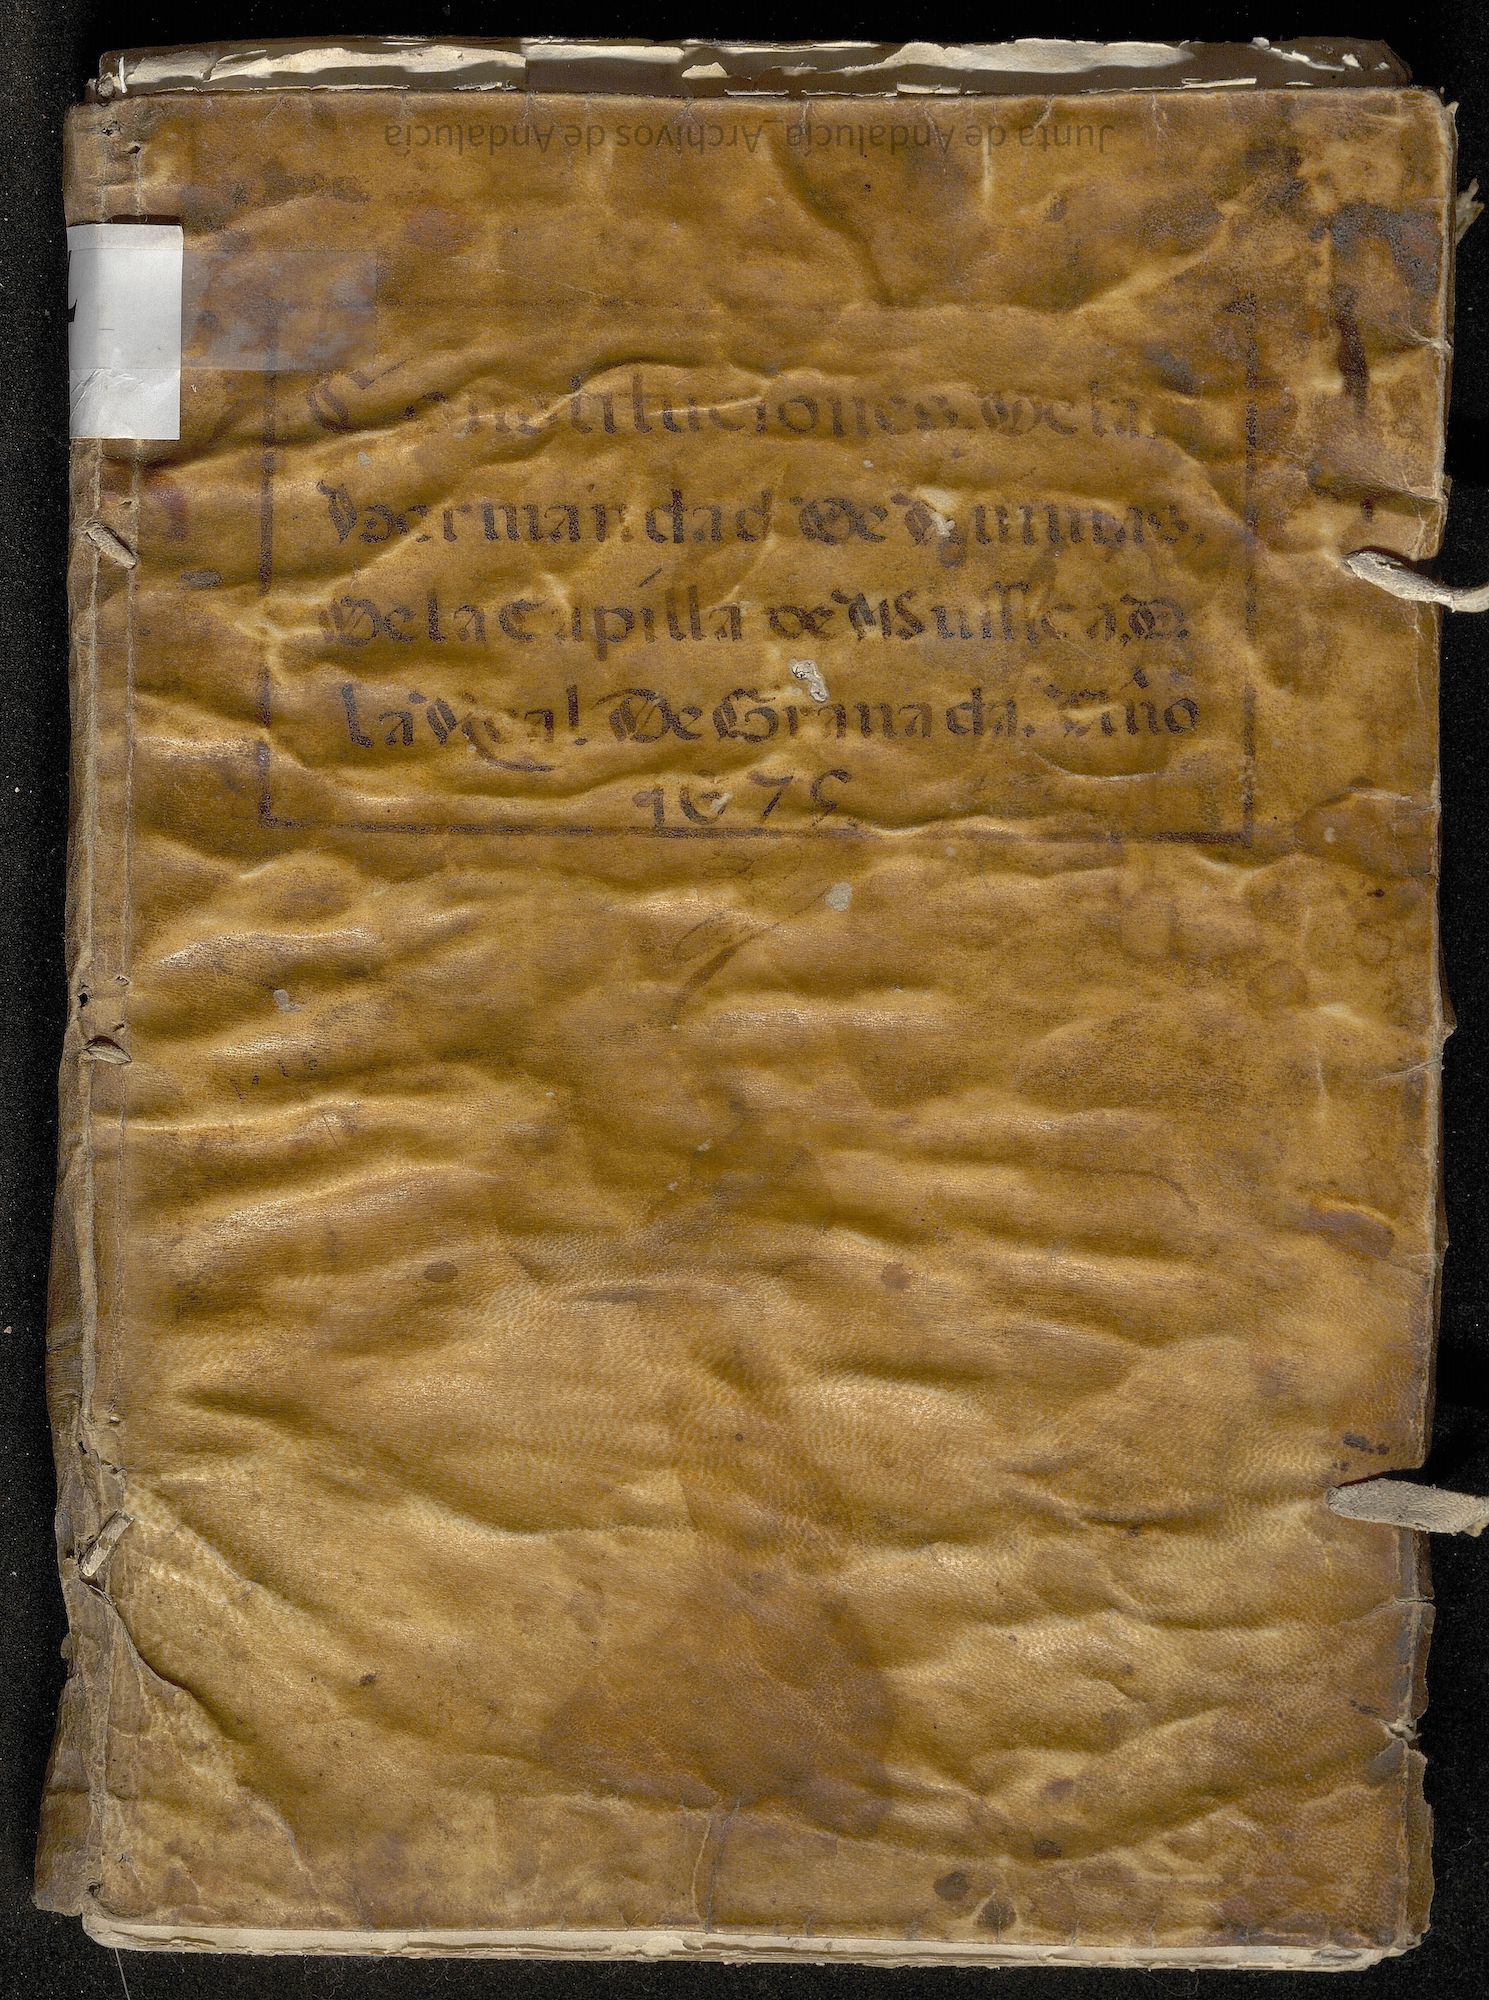 Junta de Andalucía_Archivos de Andalucía
Constituciones de la
Hermandad de Animas,
De la Capilla de Mussica, D.
la Real De Granada. Año
1675